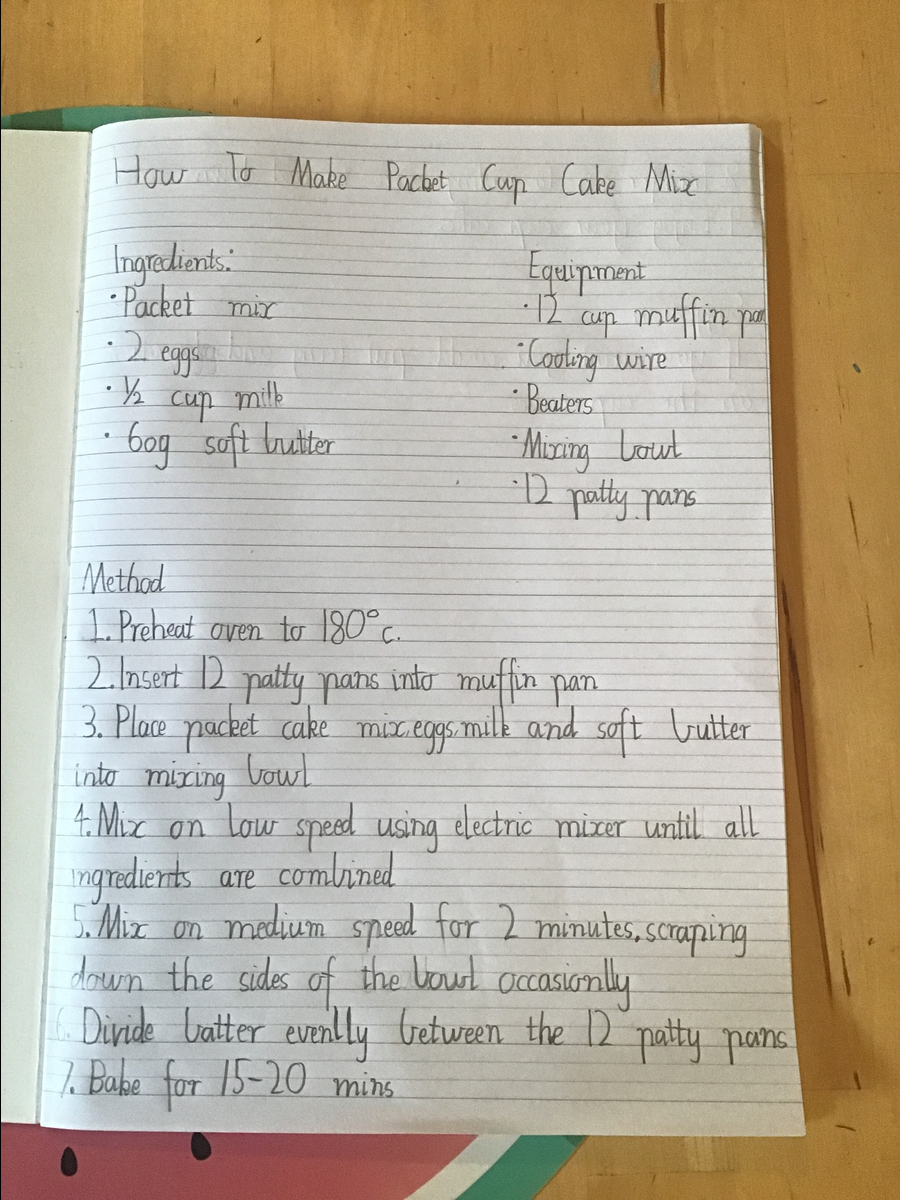 How To Make Packet Cup Cake Mix
Ingredients:
·Packet mix
·2 eggs
·½ cup milk
·60g soft butter
Equipment
·12 cup muffin pan
·Cooling wire
·Beaters
·Mixing bowl
·12 patty pans
Method
1. Preheat oven to 180°c.
2. Insert 12 patty pans into muffin pan
3. Place packet cake mix, eggs, milk and soft butter
into mixing bowl
4. Mix on low speed using electric mixer until all
ingredients are combined
5. Mix on medium speed for 2 minutes, scraping
down the sides of the bowl occasionlly
6. Divide batter evenlly between the 12 patty pans
7. Bake for 15-20 mins